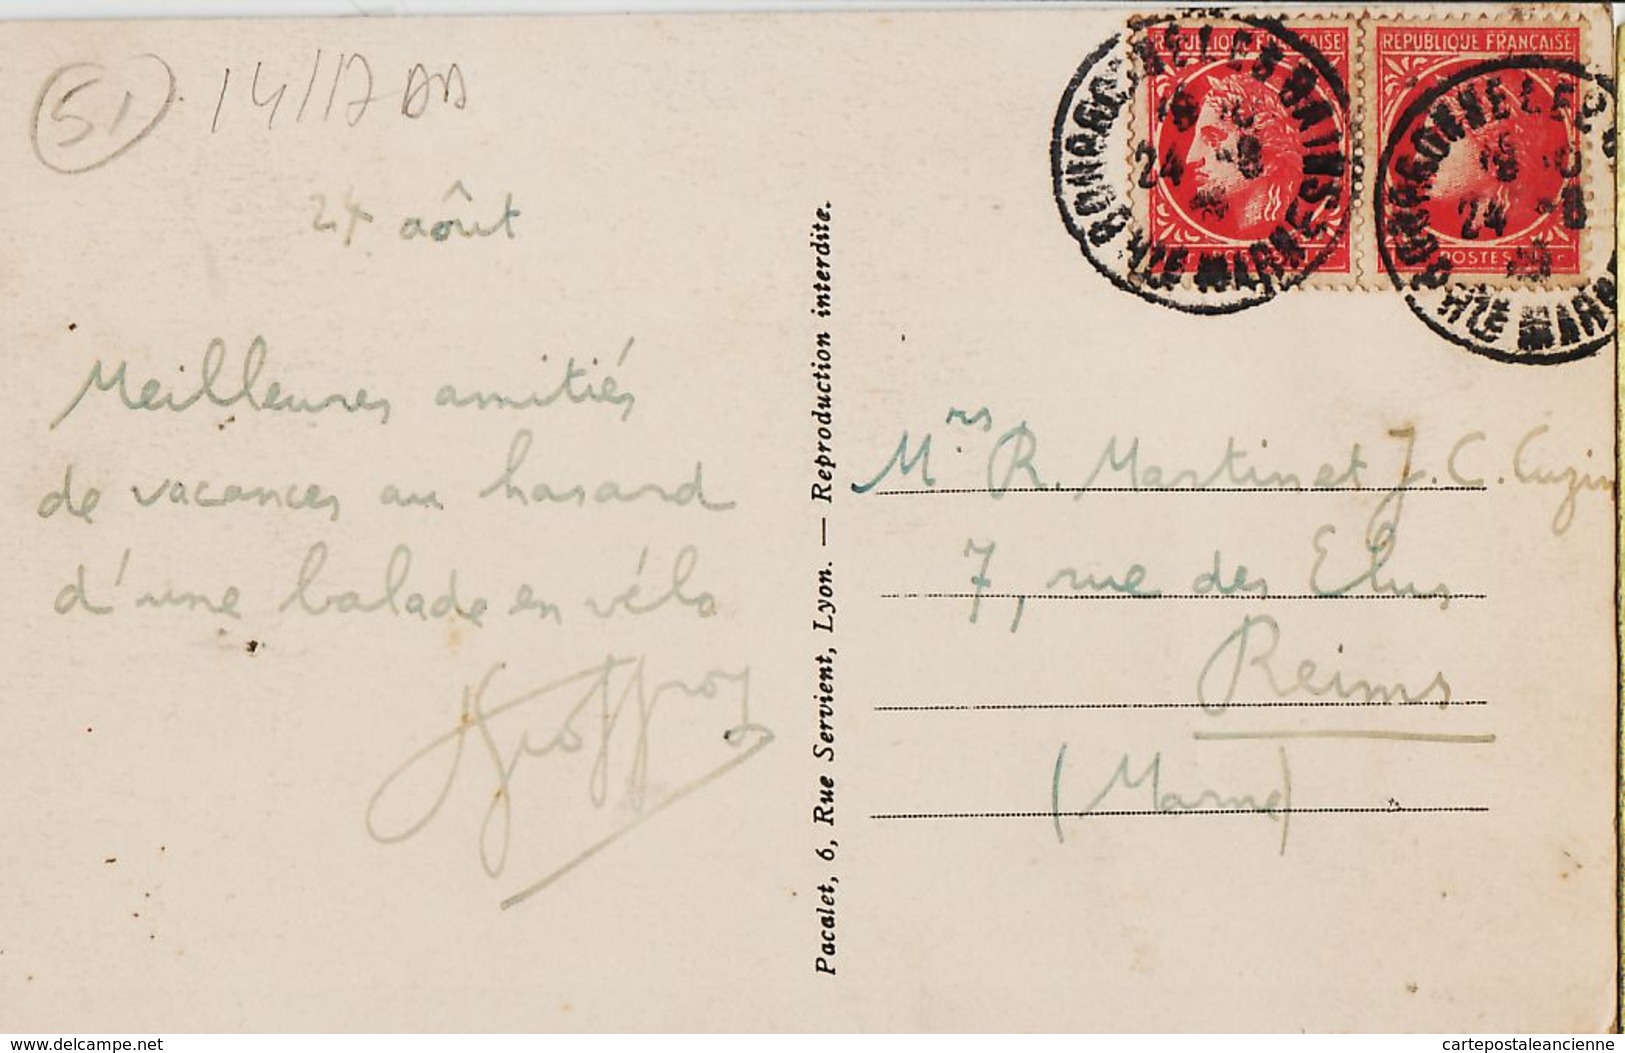 51 14/17 AA
24 août
Meilleures amitiés
de vacances au hasard
d'une balade en vélo
Geoffroy
Pacalet, 6, Rue Servient, Lyon. — Reproduction interdite.
REPUBLIQUE FRANÇAISE
REPUBLIQUE FRANÇAISE
POSTES
BOURBONNE LES BAINS
24 - 8
HTE MARNE
BOURBONNE LES B
24 - 8
HTE MARN
Mrs R. Martin et J. C. Cuzin
7, rue des Elus
Reims
(Marne)
delcampe.net
cartepostaleancienne